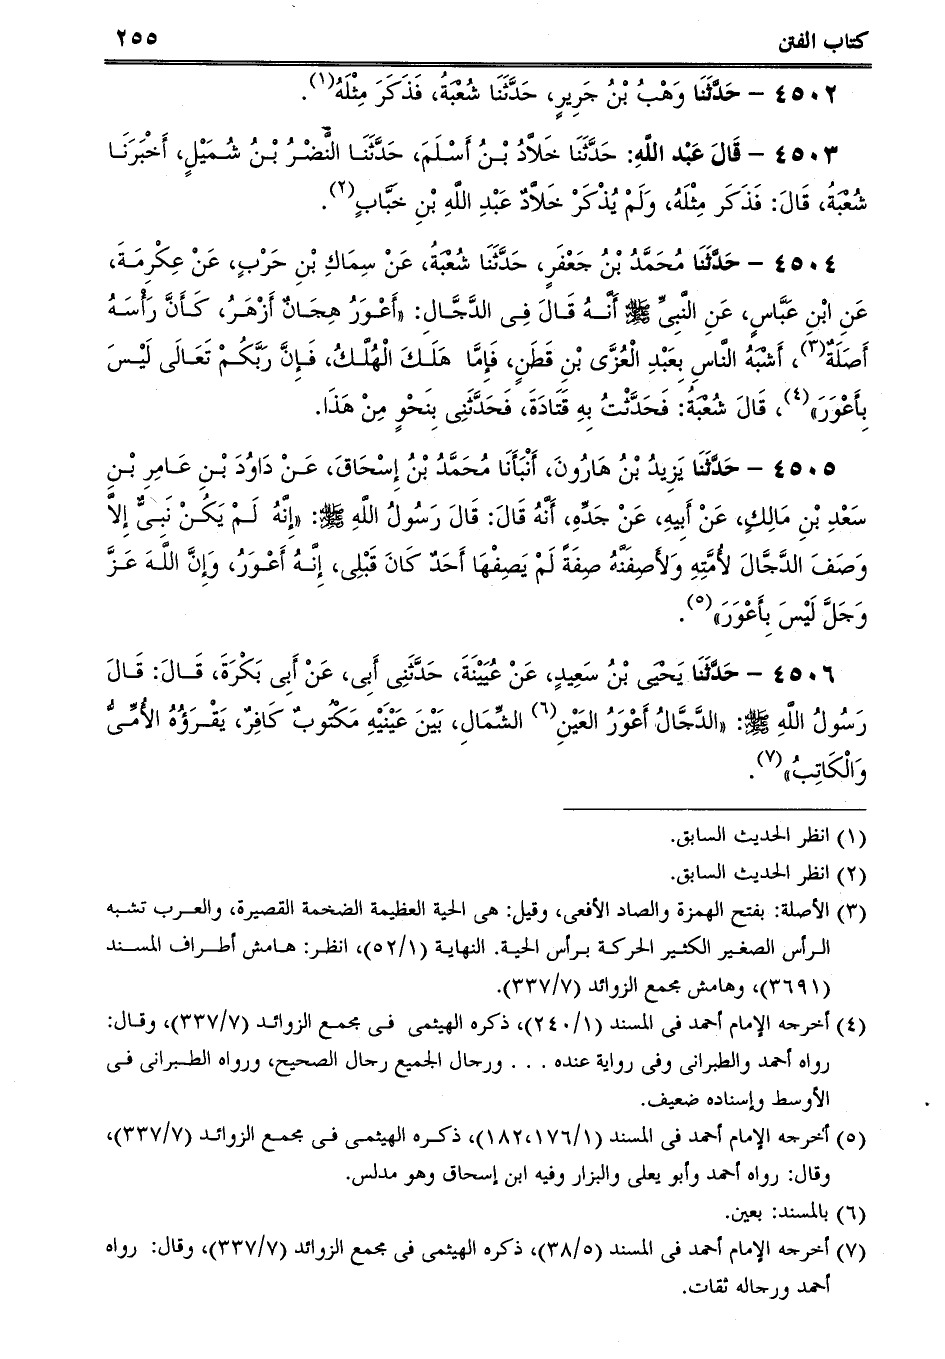 كتاب الفتن ٢٥٥
٤٥٠٢ – حَدَّثَنَا وَهْبُ بْنُ جَرِيرٍ، حَدَّثَنَا شُعْبَةُ، فَذَكَرَ مِثْلَهُ(١).
٤٥٠٣ – قَالَ عَبْد اللهِ: حَدَّثَنَا خَلَّادُ بْنُ أَسْلَمَ، حَدَّثَنَا النَّضْرُ بْنُ شُمَيْلٍ، أَخْبَرَنَا
شُعْبَةُ، قَالَ: فَذَكَر مِثْلَهُ، وَلَمْ يُذْكَرْ خَلَّادٌ عَبْدِ اللَّهِ بْنِ خَبَّابٍ(٢).
٤٥٠٤ – حَدَّثَنَا مُحَمَّدُ بْنُ جَعْفَرٍ، حَدَّثَنَا شُعْبَةُ، عَنْ سِمَاكِ بْنِ حَرْبٍ، عَنْ عِكْرِمَةَ،
عَنِ ابْنِ عَبَّاسٍ، عَنِ النَّبِيِّ ﷺ أَنَّهُ قَالَ فِى الدَّجَّالِ: «أَعْوَرُ هِجَانٌ أَزْهَرُ، كَأَنَّ رَأْسَهُ
أَصَلَةٌ(٣)، أَشْبَهُ النَّاسِ بِعَبْدِ الْعُزَّى بْنِ قَطَنٍ، فَإِمَّا هَلَكَ الْهُلَّكُ، فَإِنَّ رَبَّكُمْ تَعَالَى لَيْسَ
بِأَعْوَرَ»(٤)، قَالَ شُعْبَةُ: فَحَدَّثْتُ بِهِ قَتَادَةَ، فَحَدَّثَنِى بِنَحْوٍ مِنْ هَذَا.
٤٥٠٥ – حَدَّثَنَا يَزِيدُ بْنُ هَارُونَ، أَنْبَأَنَا مُحَمَّدُ بْنُ إِسْحَاقَ، عَنْ دَاوُدَ بْنِ عَامِرِ بْنِ
سَعْدِ بْنِ مَالِكٍ، عَنْ أَبِيهِ، عَنْ جَدِّهِ، أَنَّهُ قَالَ: قَالَ رَسُولُ اللَّهِ ﷺ: «إِنَّهُ لَمْ يَكُنْ نَبِىٌّ إِلاَّ
وَصَفَ الدَّجَّالَ لأُمَّتِهِ وَلأَصِفَنَّهُ صِفَةً لَمْ يَصِفْهَا أَحَدٌ كَانَ قَبْلِى، إِنَّهُ أَعْوَرُ، وَإِنَّ اللَّهَ عَزَّ
وَجَلَّ لَيْسَ بِأَعْوَرَ»(٥).
٤٥٠٦ – حَدَّثَنَا يَحْيَى بْنُ سَعِيدٍ، عَنْ عُيَيْنَةَ، حَدَّثَنِى أَبِى، عَنْ أَبِى بَكْرَةَ، قَالَ: قَالَ
رَسُولُ اللَّهِ ﷺ: «الدَّجَّالُ أَعْوَرُ العَيْنِ(٦) الشِّمَالِ، بَيْنَ عَيْنَيْهِ مَكْتُوبٌ كَافِرٌ، يَقْرَؤُهُ الأُمِّىُّ
وَالْكَاتِبُ»(٧).
(١) انظر الحديث السابق.
(٢) انظر الحديث السابق.
(٣) الأصلة: بفتح الهمزة والصاد الأفعى، وقيل: هى الحية العظيمة الضخمة القصيرة، والعرب تشبه
الرأس الصغير الكثير الحركة برأس الحية. النهاية (٥٢/١)، انظر: هامش أطراف المسند
(٣٦٩١)، وهامش مجمع الزوائد (٣٣٧/٧).
(٤) أخرجه الإمام أحمد فى المسند (٢٤٠/١)، ذكره الهيثمى فى مجمع الزوائد (٣٣٧/٧)، وقال:
رواه أحمد والطبرانى وفى رواية عنده . . . ورحال الجميع رحال الصحيح، ورواه الطبرانى فى
الأوسط وإسناده ضعيف.
(٥) أخرجه الإمام أحمد فى المسند (١٨٢،١٧٦/١)، ذكره الهيثمى فى مجمع الزوائد (٣٣٧/٧)،
وقال: رواه أحمد وأبو يعلى والبزار وفيه ابن إسحاق وهو مدلس.
(٦) بالمسند: بعين.
(٧) أخرجه الإمام أحمد فى المسند (٣٨/٥)، ذكره الهيثمى فى مجمع الزوائد (٣٣٧/٧)، وقال: رواه
أحمد ورحاله ثقات.